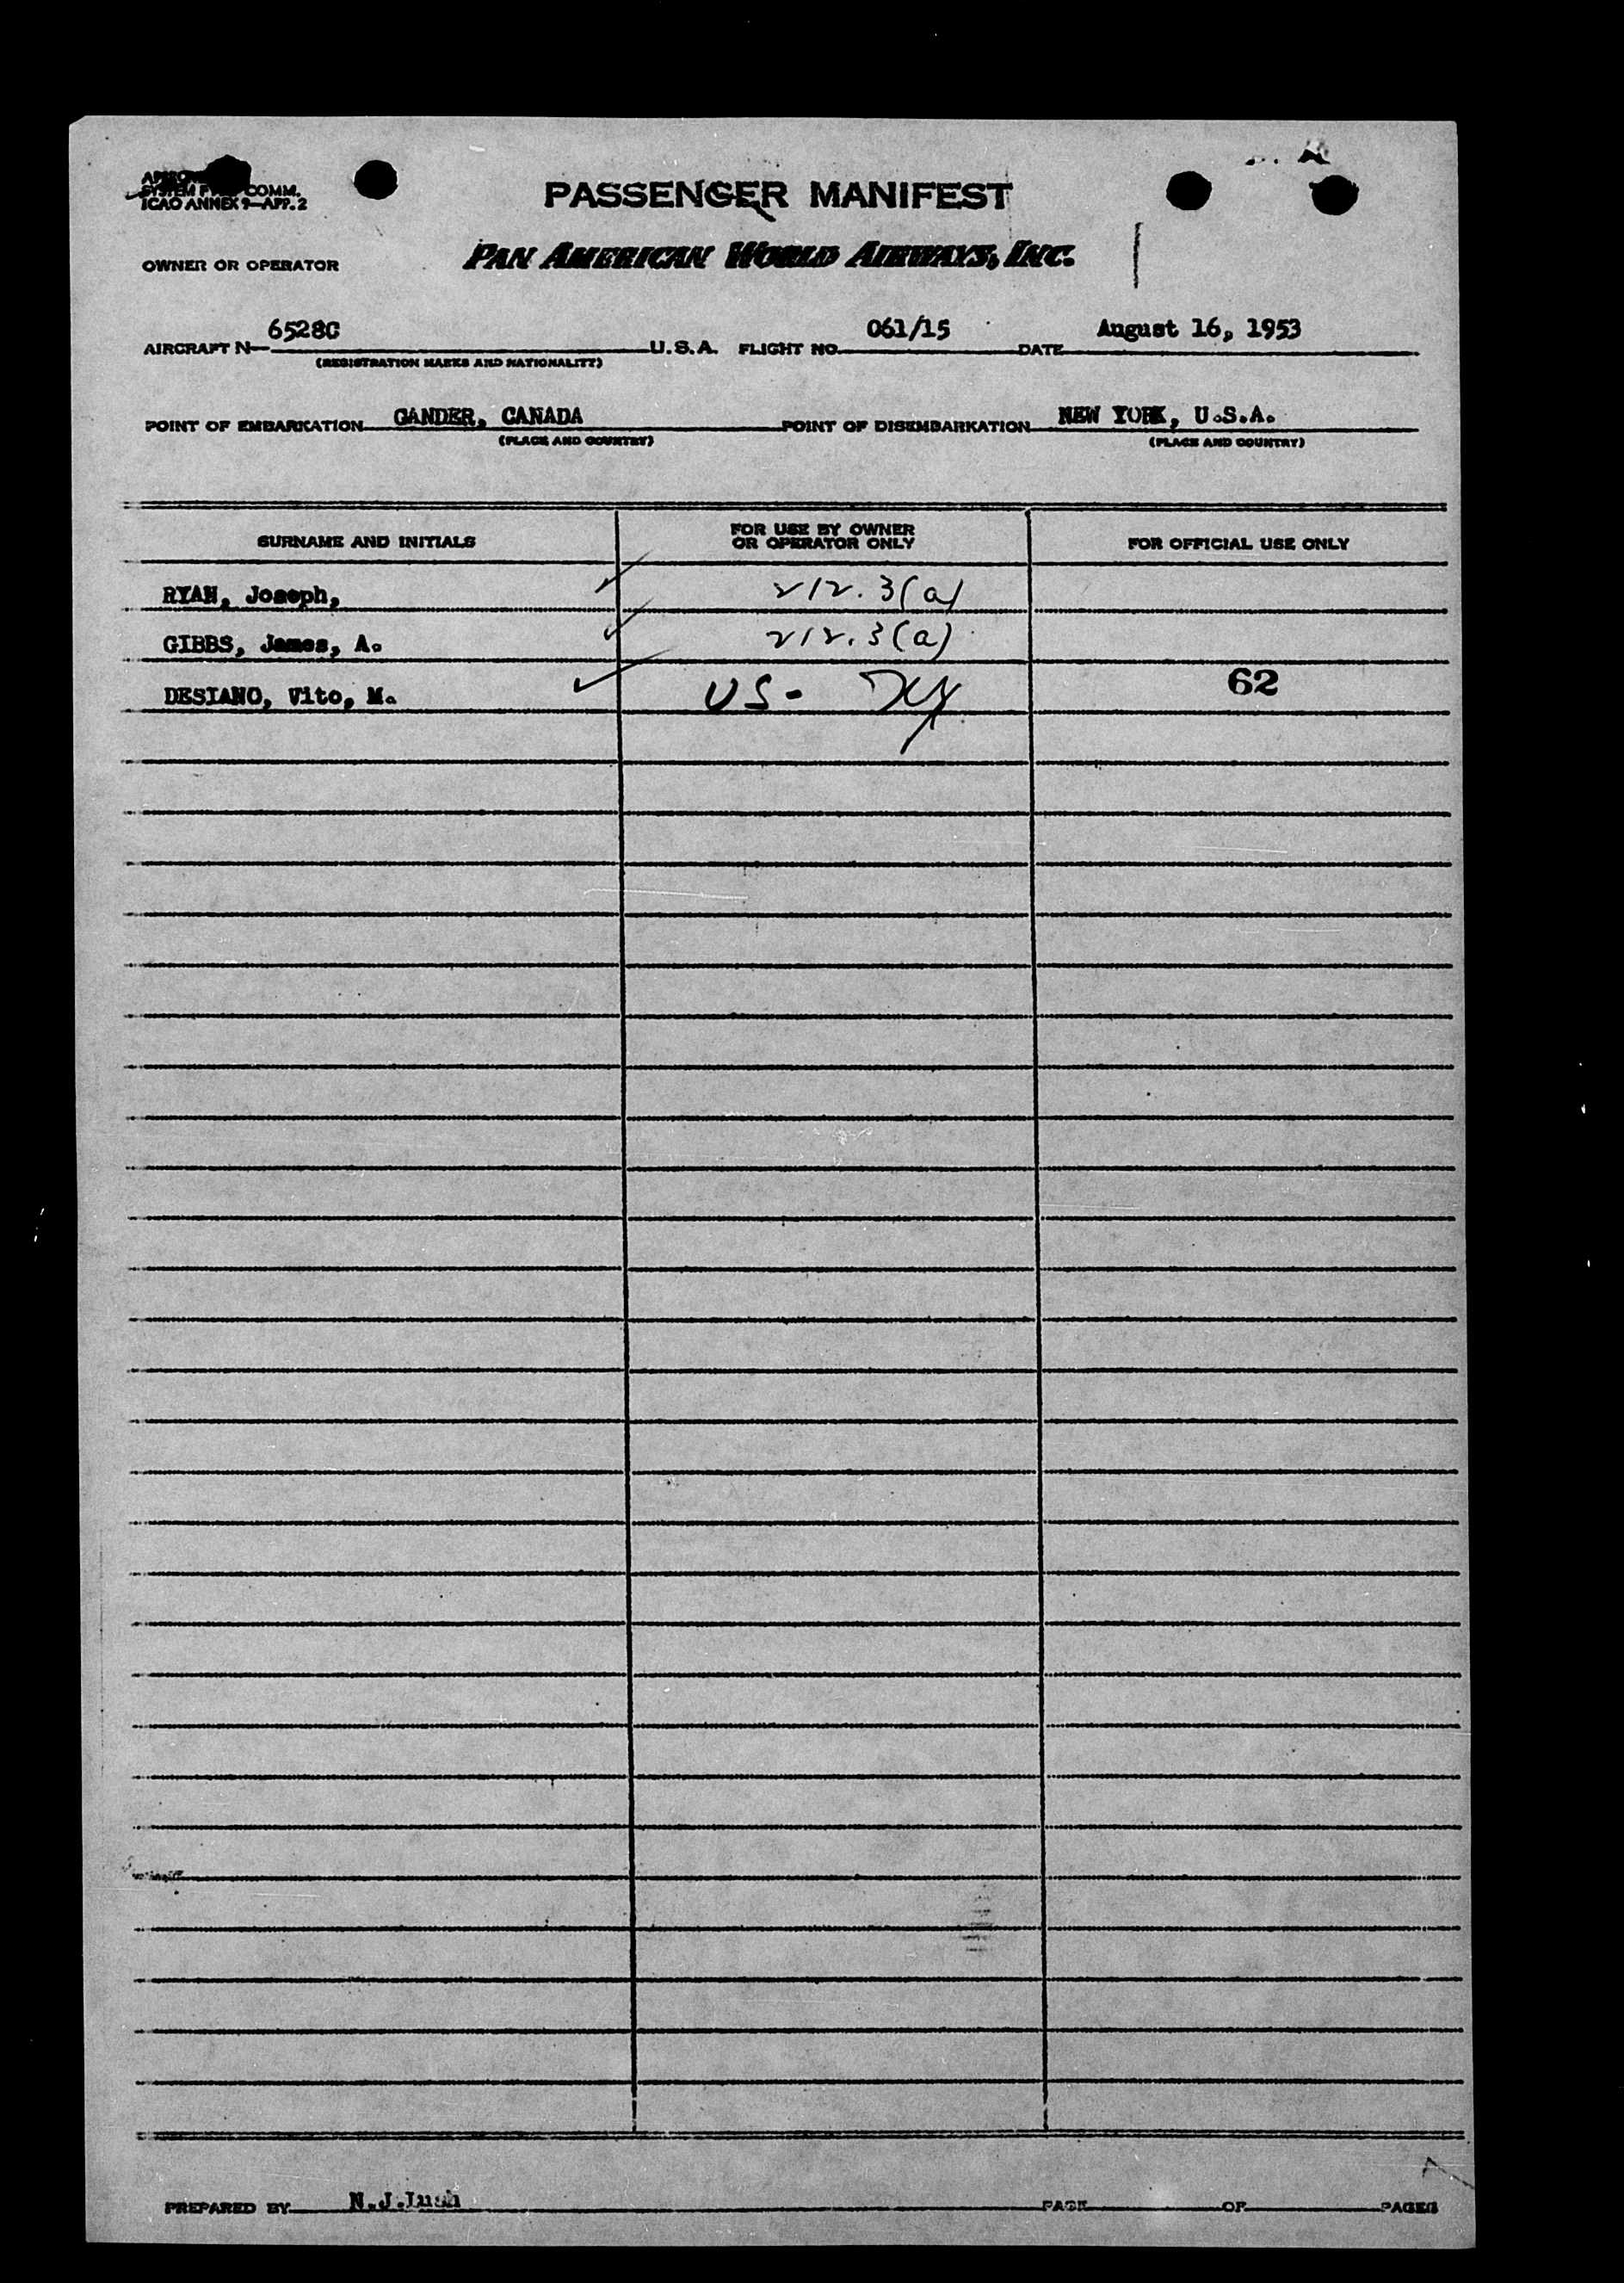 SYSTEM COMM.
ICAO ANNEX 9—APP. 2
PASSENGER MANIFEST
OWNER OR OPERATOR PAN AMERICAN WORLD AIRWAYS, INC.
AIRCRAFT N— 6528C U.S.A. FLIGHT NO. 061/15 DATE August 16, 1953
(REGISTRATION MARKS AND NATIONALITY)
POINT OF EMBARKATION GANDER, CANADA POINT OF DISEMBARKATION NEW YORK, U.S.A.
(PLACE AND COUNTRY) (PLACE AND COUNTRY)
SURNAME AND INITIALS FOR USE BY OWNER OR OPERATOR ONLY FOR OFFICIAL USE ONLY
RYAN, Joseph, 212.3(a)
GIBBS, James, A. 212.3(a)
DESIANO, Vito, M. US- 62
PREPARED BY N.J.Lush PAGE OF PAGES